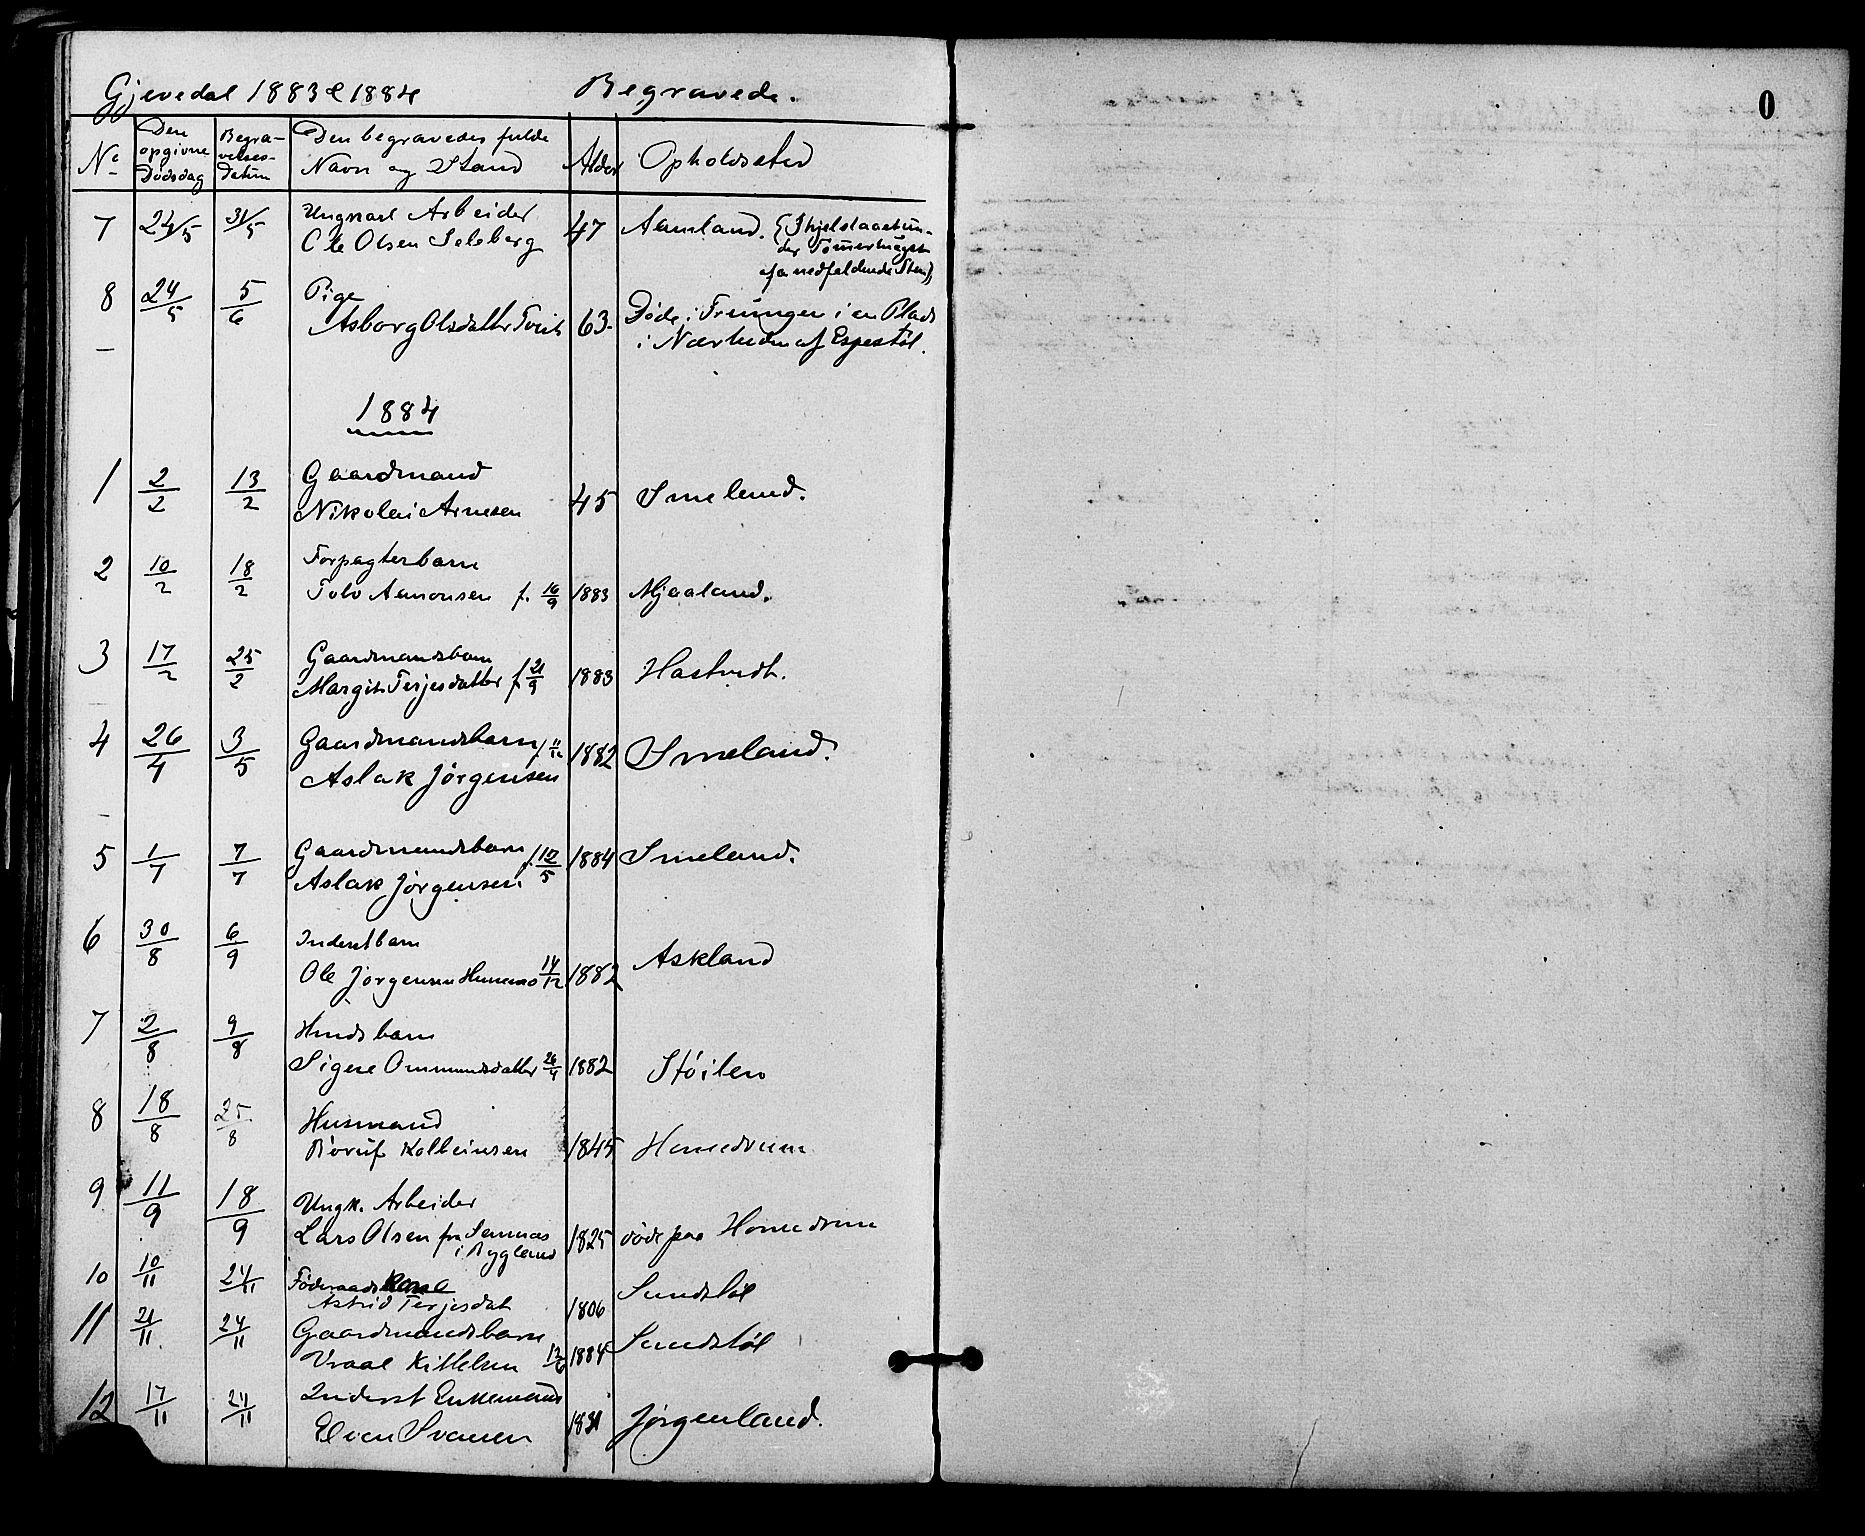 Gjevedal 1883 & 1884 Begravede.
No Den opgivne Dødsdag Begravelses-Datum Den begravedes fulde Navn og Stand Alder Opholdssted
7 24/5 31/5 Ungkarl Arbeider 47 Aamland. (Ihjelslaaet un-
Ole Olsen Seleberg der Tømmerhugst
af en nedfaldende Sten).
8 24/5 5/6 Pige
Asborg Olsdatter Tveit 63. Døde i Treungen i en Plads
i Nærheden af Espestøl.
1884
1 2/2 13/2 Gaardmand
Nikolai Arnesen 45 Smeland.
2 10/2 18/2 Forpagterbarn
Tolv Aamonsen f. 16/9 1883 Mjaaland.
3 17/2 25/2 Gaardmandsbarn
Margit Terjesdatter f. 21/9 1883 Hastvedt.
4 26/4 3/5 Gaardmandsbarn f. 11/12 1882 Smeland.
Aslak Jørgensen
5 1/7 7/7 Gaardmandsbarn f. 12/5 1884 Smeland.
Aslak Jørgensen
6 30/8 6/9 Inderstbarn
Ole Jørgensen 14/12 1882 Askland
7 2/8 9/8 Husdsbarn
Signe Ommundsdatter 26/4 1882 Støilen
8 18/8 25/8 Husmand
Rørulf Kolbeinsen 1845 Homdrum
9 11/9 18/9 Ungk. Arbeider
Lars Olsen fra Sannæs 1825 døde paa Homdrum
i Bygland
10 10/11 24/11 Føderaadskone Sundsløl
Astrid Terjesdat 1806
11 21/11 24/11 Gaardmandsbarn Sundstøl
Vraal Kittelsen 12/6 1884
12 17/11 24/11 Inderst Enkemand
Elven Svensen 1831 Jørgenland.
0